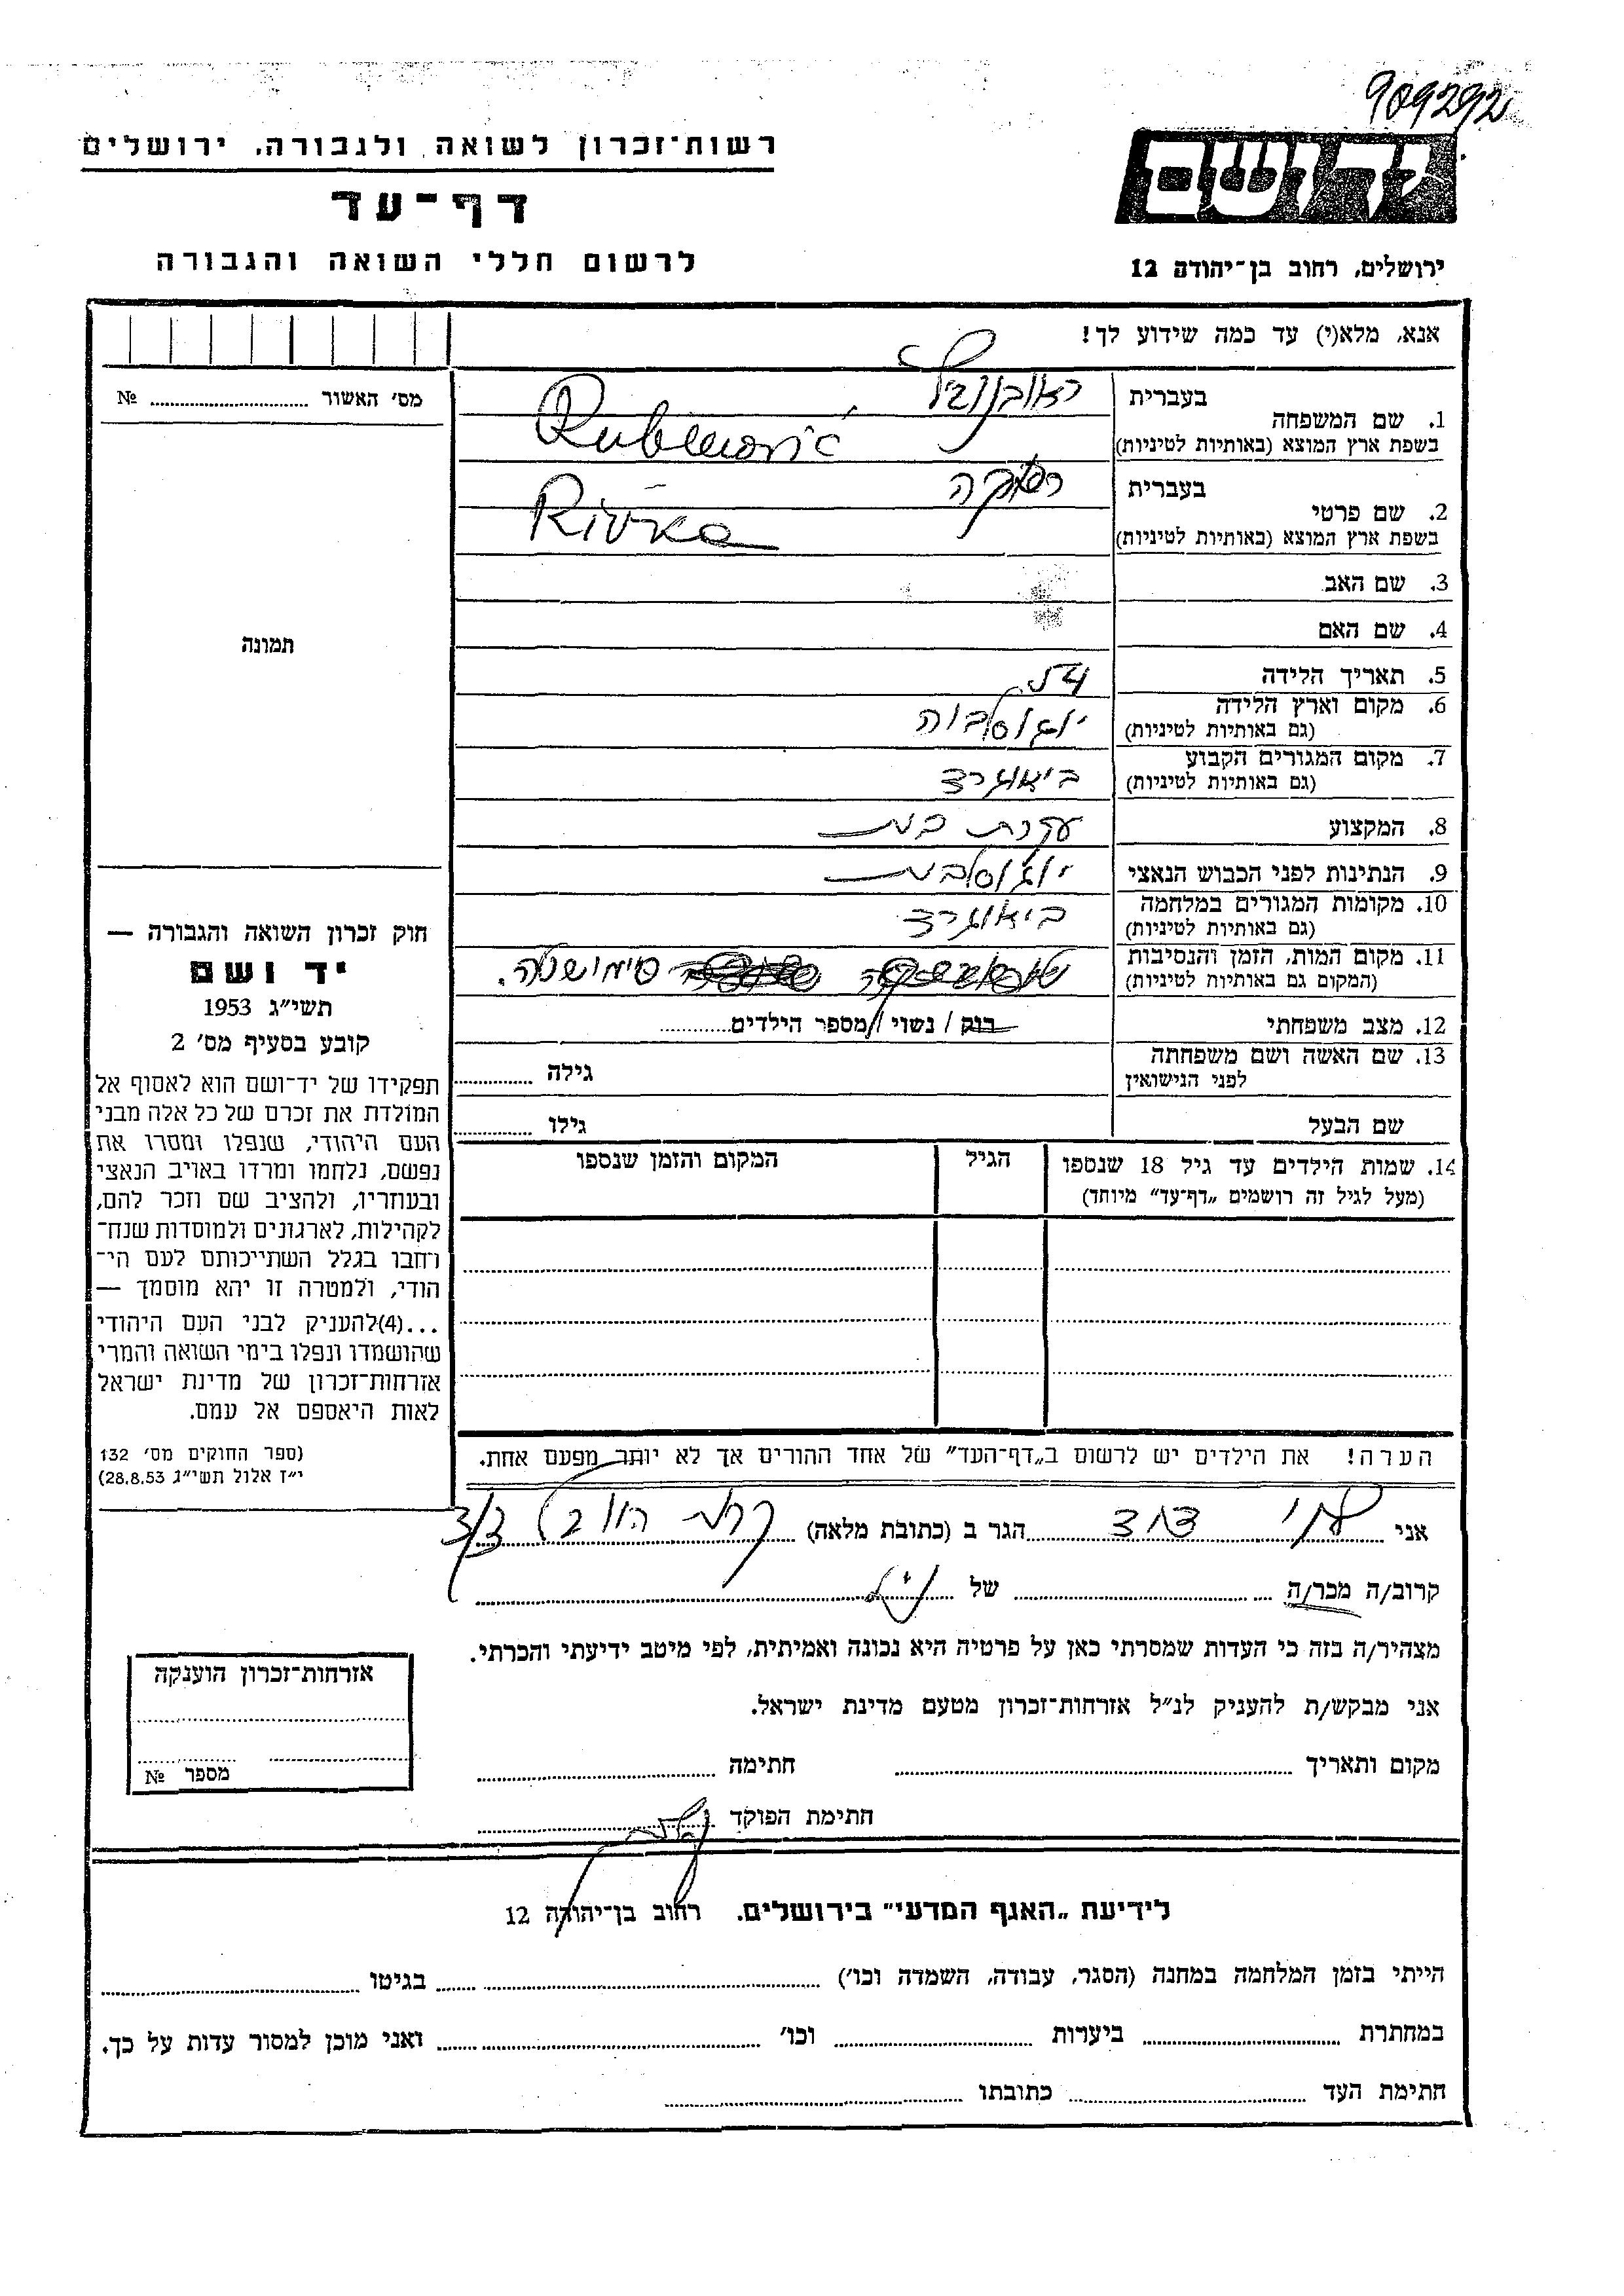 909292
רשות־זכרון לשואה ולגבורה, ירושלים
דף־עד
לרשום חללי השואה והגבורה
יד ושם
ירושלים, רחוב בן־יהודה 12
אנא, מלא(י) עד כמה שידוע לך!
מס׳ האשור № 
1. שם המשפחה
בעברית
ראובנוביץ
בשפת ארץ המוצא (באותיות לטיניות)
Rubenović
2. שם פרטי
בעברית
רבקה
בשפת ארץ המוצא (באותיות לטיניות)
Rivka
3. שם האב
4. שם האם
תמונה
5. תאריך הלידה
54
6. מקום וארץ הלידה יוגוסלביה
(גם באותיות לטיניות)
7. מקום המגורים הקבוע ביאוגרד
(גם באותיות לטיניות)
8. המקצוע עקרת בית
9. הנתינות לפני הכבוש הנאצי יוגוסלבית
10. מקומות המגורים במלחמה ביאוגרד
(גם באותיות לטיניות)
11. מקום המות, הזמן והנסיבות
(המקום גם באותיות לטיניות)
12. מצב משפחתי רוק / נשוי / מספר הילדים
13. שם האשה ושם משפחתה גילה
לפני הנישואין
שם הבעל גילו
14. שמות הילדים עד גיל 18 שנספו הגיל המקום והזמן שנספו
(מעל לגיל זה רושמים „דף־עד” מיוחד)
הערה! את הילדים יש לרשום ב„דף־העד” של אחד ההורים אך לא יותר מפעם אחת.
חוק זכרון השואה והגבורה —
יד ושם
תשי״ג 1953
קובע בסעיף מס׳ 2
תפקידו של יד־ושם הוא לאסוף אל
המולדת את זכרם של כל אלה מבני
העם היהודי, שנפלו ומסרו את
נפשם, נלחמו ומרדו באויב הנאצי
ובעוזריו, ולהציב שם וזכר להם,
לקהילות, לארגונים ולמוסדות שנח־
רחבו בגלל השתייכותם לעם הי־
הודי, ולמטרה זו יהא מוסמך —
...(4)להעניק לבני העם היהודי
שהושמדו ונפלו בימי השואה והמרי
אזרחות־זכרון של מדינת ישראל
לאות היאספם אל עמם.
(ספר החוקים מס׳ 132
י״ז אלול תשי״ג 28.8.53)
אני הגר ב (כתובת מלאה) 3/3
קרוב/ה מכר/ה של
מצהיר/ה בזה כי העדות שמסרתי כאן על פרטיה היא נכונה ואמיתית, לפי מיטב ידיעתי והכרתי.
אני מבקש/ת להעניק לנ״ל אזרחות־זכרון מטעם מדינת ישראל.
מקום ותאריך חתימה
חתימת הפוקד
אזרחות־זכרון הוענקה
מספר №
לידיעת „האגף המדעי” בירושלים. רחוב בן־יהודה 12
הייתי בזמן המלחמה במחנה (הסגר, עבודה, השמדה וכו׳) בגיטו
במחתרת ביערות וכו׳ ואני מוכן למסור עדות על כך.
חתימת העד כתובתו